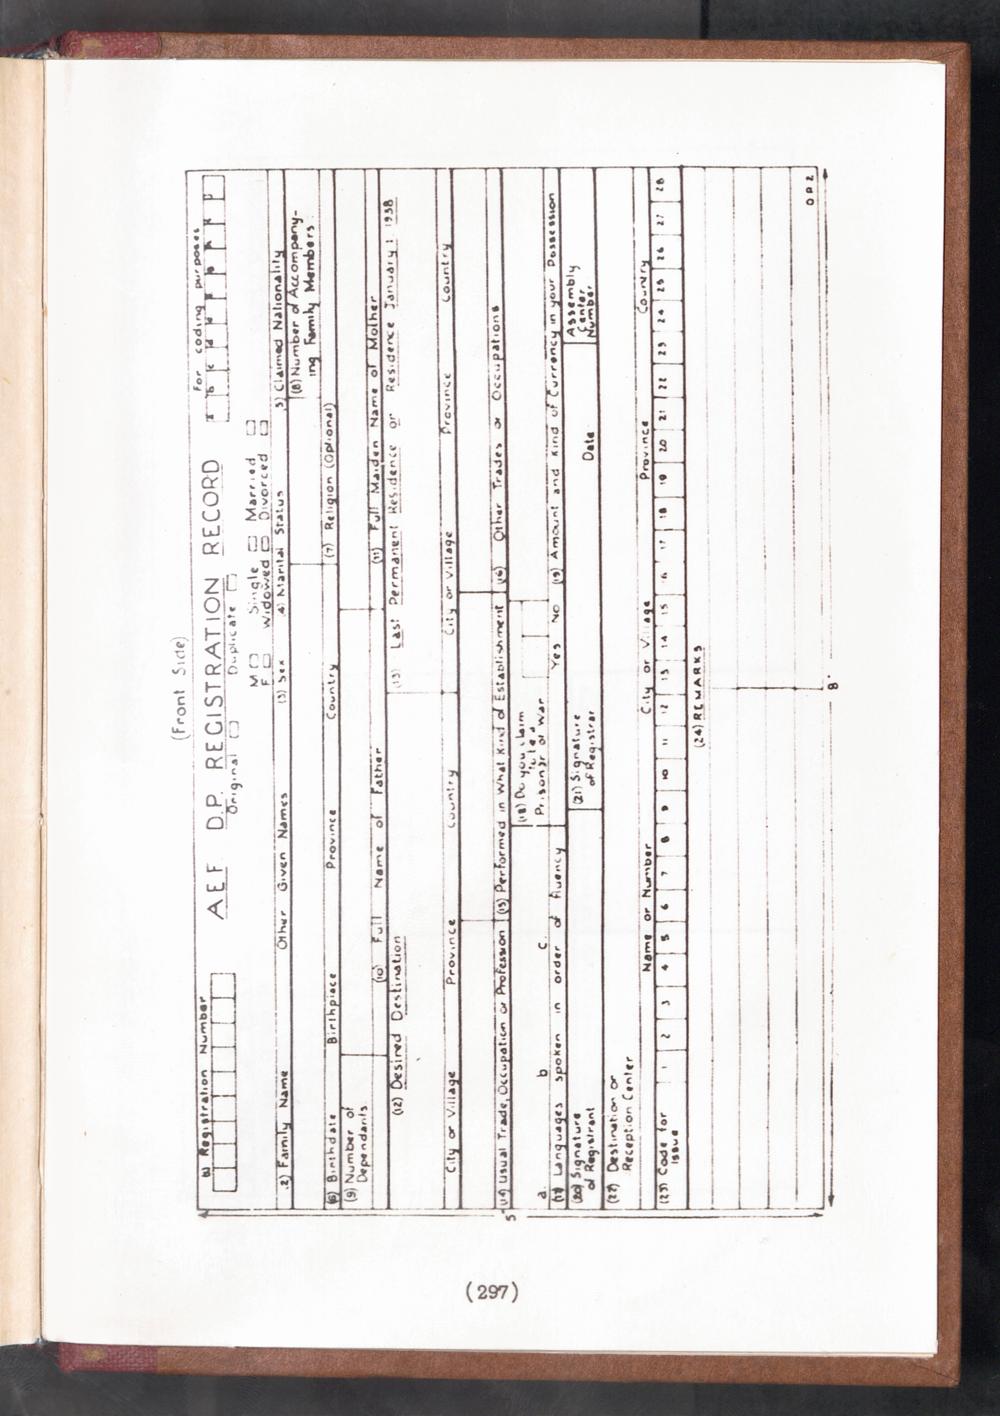 (Front Side)
AEF D.P. REGISTRATION RECORD
For coding purposes
Registration Number
Original □ Duplicate □
M □ Single □ Married □
F □ Widowed □ Divorced □
2) Family Name Other Given Names (3) Sex 4) Marital Status 5) Claimed Nationality
(6) Birthdate Birthplace Province Country (7) Religion (Optional) (8) Number of Accompany-
ing Family Members:
(9) Number of
Dependants
(10) Full Name of Father (11) Full Maiden Name of Mother
(12) Desired Destination (13) Last Permanent Residence or Residence January 1 1938
City or Village Province Country City or Village Province Country
(14) Usual Trade, Occupation or Profession (15) Performed in What Kind of Establishment (16) Other Trades or Occupations
a. b c.
(17) Languages spoken in order of fluency
(18) Do you claim
Prisoner of War
Yes No
(19) Amount and Kind of Currency in your Possession
(20) Signature
of Registrant
(21) Signature
of Registrar
Date
Assembly
Center
Number
(22) Destination or
Reception Center
Name or Number City or Village Province Country
(23) Code for
Issue
1 2 3 4 5 6 7 8 9 10 11 12 13 14 15 16 17 18 19 20 21 22 23 24 25 26 27 28
(24) REMARKS
D P 2
5"
8"
(297)